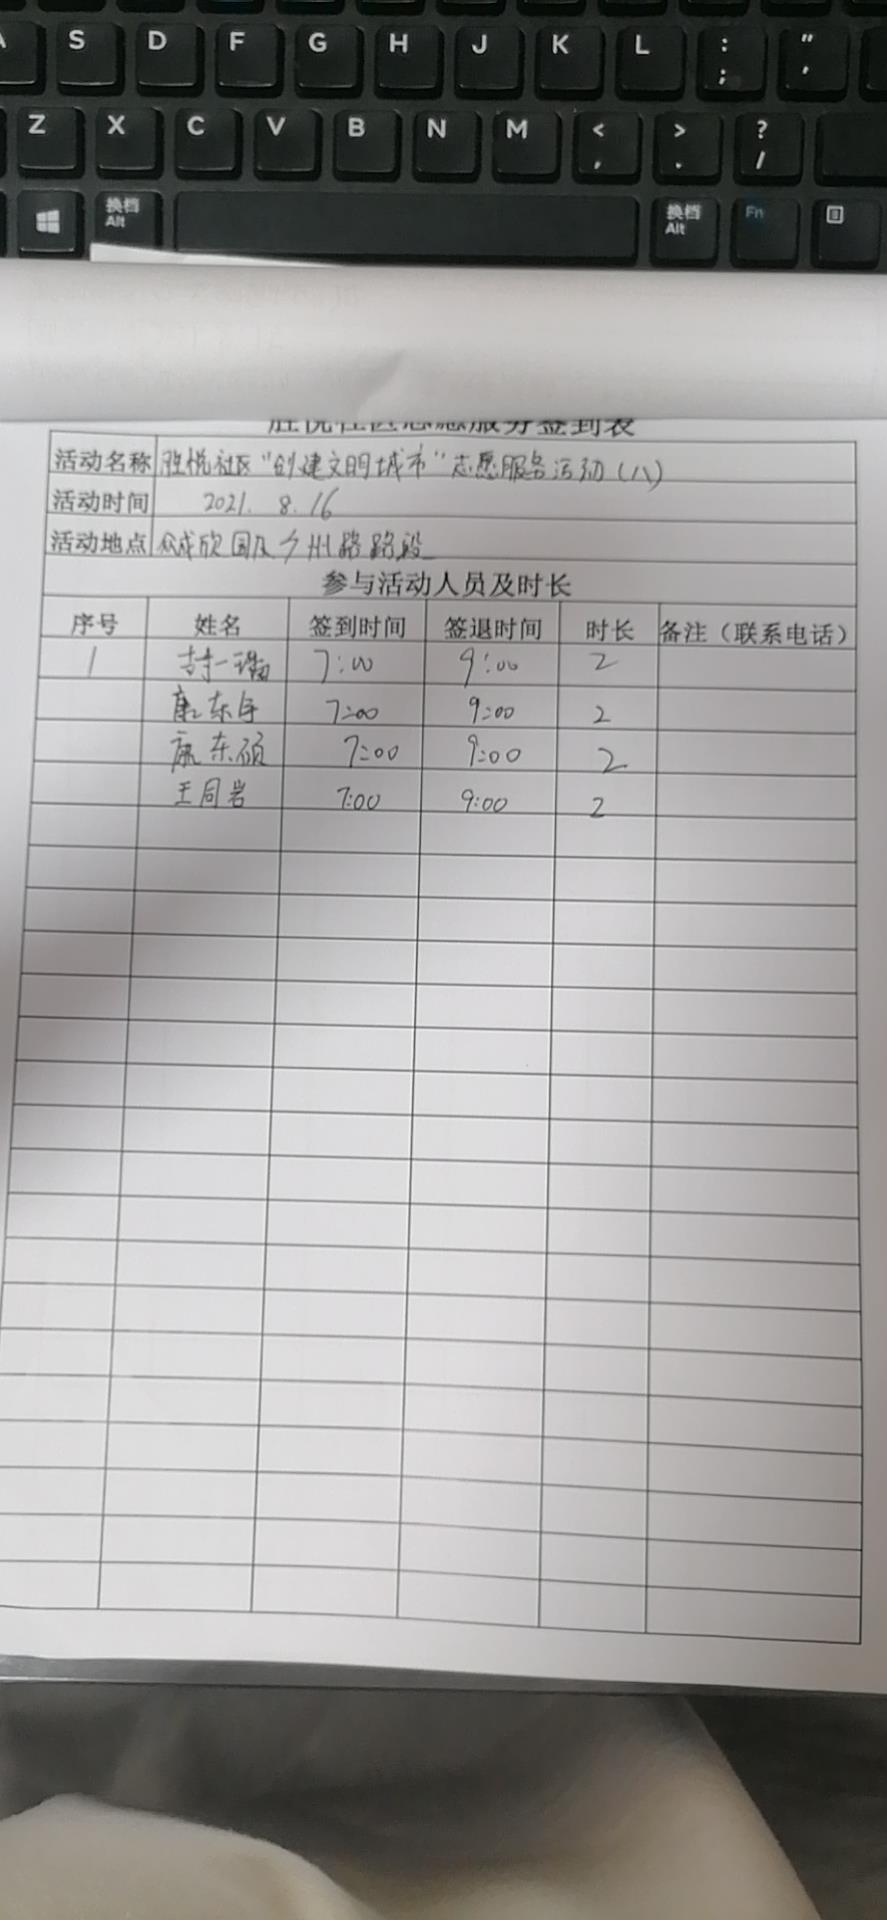 S D F G H J K L : ; " '
Z X C V B N M < , > . ? /
换档 Alt 换档 Alt Fn
胜悦社区志愿服务签到表
活动名称 胜悦社区“创建文明城市”志愿服务活动(八)
活动时间 2021. 8. 16
活动地点 路路段
参与活动人员及时长
序号 姓名 签到时间 签退时间 时长 备注（联系电话）
1 7:00 9:00 2
康东 7:00 9:00 2
康东硕 7:00 9:00 2
王同岩 7:00 9:00 2